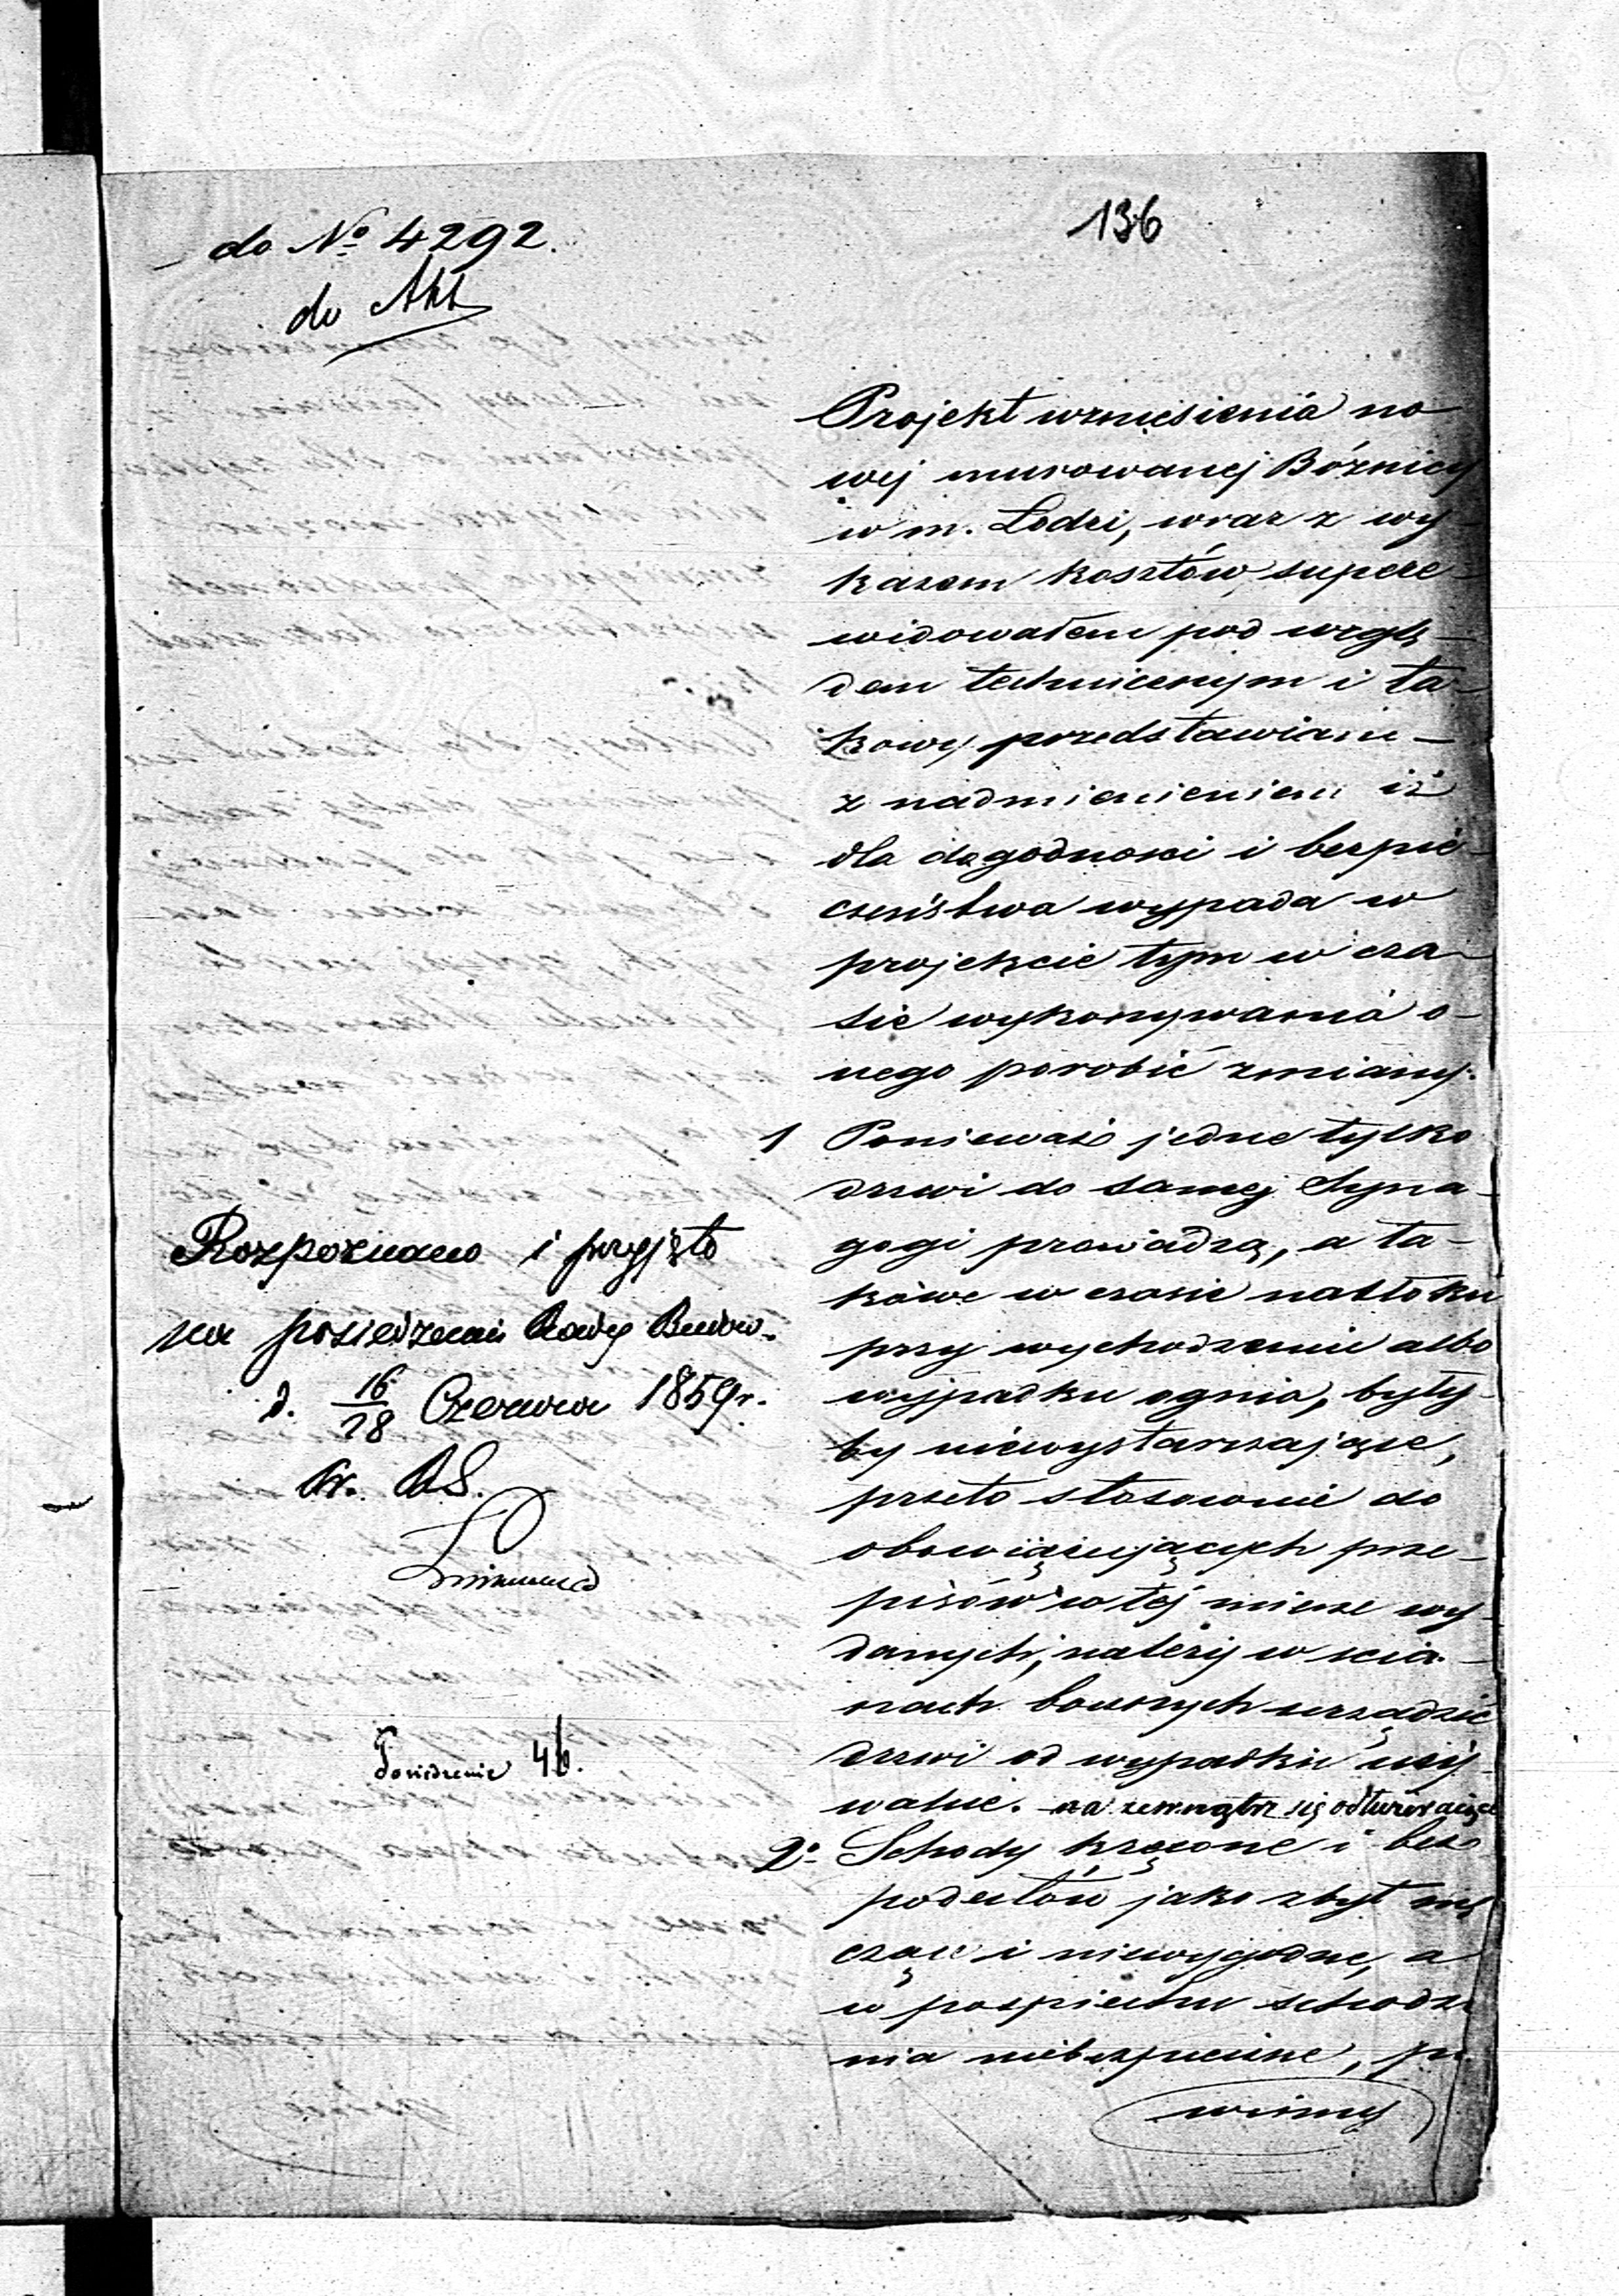 136
do № 4292.
do Akt
Projekt wzniesienia no
wej murowanej Bóżnicy
w m. Łodzi, wraz z wy-
kazem kosztów, superre-
widowałem pod wzglę-
dem technicznym i ta-
kowy przedstawiam -
z nadmienieniem iż
dla dogodności i bezpie-
czeństwa wypada w
projekcie tym w cza-
sie wykonywania o-
nego porobić zmiany.
1 Ponieważ jedne tylko
drzwi do samej Syna-
gogi prowadzą, a ta-
kowe w czasie natłoku
przy wychodzeniu albo
wypadku ognia, były-
by niewystarczające,
przeto stosownie do
obowiązujących prze-
pisów w tej mierze wy-
danych, należy w ścia-
nach bocznych urządzić
drzwi od wypadku uży-
walne. na zewnątrz się odtwierające
2º Schody kręcone i bez
podestów jako zbyt mę
czące i niewygodne, a
w pospiechu schodze
nia niebezpieczne, po
winny
Rozpoznano i przyjęto
na posiedzeniu Rady Budow.
d. 16/28 Czerwca 1859 r.
Posiedzenie 46.